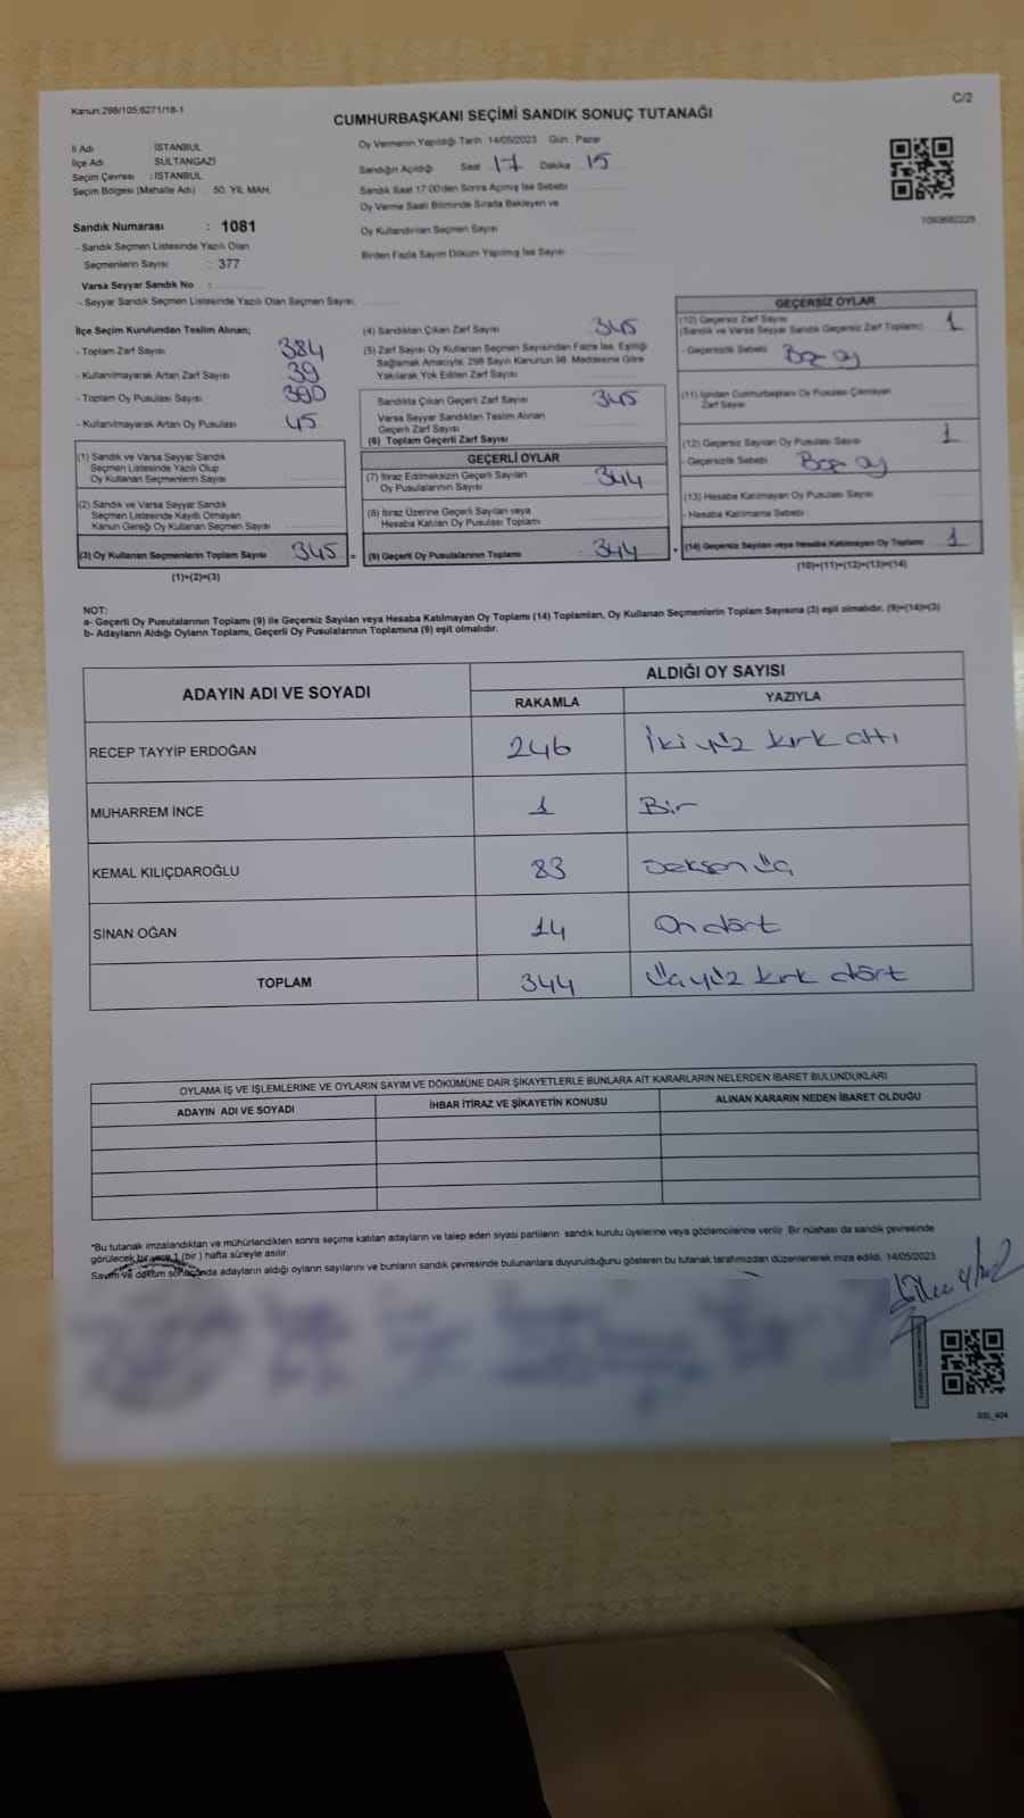 Kanun:298/105;6271/18-1
C/2
CUMHURBAŞKANI SEÇİMİ SANDIK SONUÇ TUTANAĞI
İl Adı İSTANBUL
İlçe Adı SULTANGAZİ
Seçim Çevresi : İSTANBUL
Seçim Bölgesi (Mahalle Adı) 50. YIL MAH.
Oy Vermenin Yapıldığı Tarih 14/05/2023 Gün : Pazar
Sandığın Açıldığı Saat 17 Dakika 15
Sandık Saat 17.00'den Sonra Açılmış İse Sebebi
Oy Verme Saati Bitiminde Sırada Bekleyen ve
Oy Kullandırılan Seçmen Sayısı
Birden Fazla Sayım Döküm Yapılmış İse Sayısı
Sandık Numarası : 1081
- Sandık Seçmen Listesinde Yazılı Olan
Seçmenlerin Sayısı : 377
Varsa Seyyar Sandık No :
- Seyyar Sandık Seçmen Listesinde Yazılı Olan Seçmen Sayısı
İlçe Seçim Kurulundan Teslim Alınan;
- Toplam Zarf Sayısı 384
- Kullanılmayarak Artan Zarf Sayısı 39
- Toplam Oy Pusulası Sayısı 390
- Kullanılmayarak Artan Oy Pusulası 45
(1) Sandık ve Varsa Seyyar Sandık
Seçmen Listesinde Yazılı Olup
Oy Kullanan Seçmenlerin Sayısı
(2) Sandık ve Varsa Seyyar Sandık
Seçmen Listesinde Kayıtlı Olmayan
Kanun Gereği Oy Kullanan Seçmen Sayısı
(3) Oy Kullanan Seçmenlerin Toplam Sayısı 345 =
(1)+(2)=(3)
(4) Sandıktan Çıkan Zarf Sayısı 345
(5) Zarf Sayısı Oy Kullanan Seçmen Sayısından Fazla İse, Eşitliği
Sağlamak Amacıyla, 298 Sayılı Kanunun 98. Maddesine Göre
Yakılarak Yok Edilen Zarf Sayısı
Sandıkta Çıkan Geçerli Zarf Sayısı 345
Varsa Seyyar Sandıktan Teslim Alınan
Geçerli Zarf Sayısı
(6) Toplam Geçerli Zarf Sayısı
GEÇERLİ OYLAR
(7) İtiraz Edilmeksizin Geçerli Sayılan
Oy Pusulalarının Sayısı 344
(8) İtiraz Üzerine Geçerli Sayılan veya
Hesaba Katılan Oy Pusulası Toplamı
(9) Geçerli Oy Pusulalarının Toplamı 344 +
GEÇERSİZ OYLAR
(10) Geçersiz Zarf Sayısı
(Sandık ve Varsa Seyyar Sandık Geçersiz Zarf Toplamı) 1
- Geçersizlik Sebebi Boş oy
(11) İçinden Cumhurbaşkanı Oy Pusulası Çıkmayan
Zarf Sayısı
(12) Geçersiz Sayılan Oy Pusulası Sayısı 1
- Geçersizlik Sebebi Boş oy
(13) Hesaba Katılmayan Oy Pusulası Sayısı
- Hesaba Katılmama Sebebi
(14) Geçersiz Sayılan veya Hesaba Katılmayan Oy Toplamı 1
(10)+(11)+(12)+(13)=(14)
NOT:
a- Geçerli Oy Pusulalarının Toplamı (9) ile Geçersiz Sayılan veya Hesaba Katılmayan Oy Toplamı (14) Toplamları, Oy Kullanan Seçmenlerin Toplam Sayısına (3) eşit olmalıdır. (9)+(14)=(3)
b- Adayların Aldığı Oyların Toplamı, Geçerli Oy Pusulalarının Toplamına (9) eşit olmalıdır.
ADAYIN ADI VE SOYADI ALDIĞI OY SAYISI
RAKAMLA YAZIYLA
RECEP TAYYİP ERDOĞAN 246 İki yüz kırk altı
MUHARREM İNCE 1 Bir
KEMAL KILIÇDAROĞLU 83 Seksen üç
SİNAN OĞAN 14 On dört
TOPLAM 344 Üçyüz kırk dört
OYLAMA İŞ VE İŞLEMLERİNE VE OYLARIN SAYIM VE DÖKÜMÜNE DAİR ŞİKAYETLERLE BUNLARA AİT KARARLARIN NELERDEN İBARET BULUNDUKLARI
ADAYIN ADI VE SOYADI İHBAR İTİRAZ VE ŞİKAYETİN KONUSU ALINAN KARARIN NEDEN İBARET OLDUĞU
*Bu tutanak imzalandıktan ve mühürlendikten sonra seçime katılan adayların ve talep eden siyasi partilerin sandık kurulu üyelerine veya gözlemcilerine verilir. Bir nüshası da sandık çevresinde
görülecek bir yere 1 (bir) hafta süreyle asılır.
Sayım ve döküm sonucunda adayların aldığı oyların sayılarını ve bunların sandık çevresinde bulunanlara duyurulduğunu gösteren bu tutanak tarafımızdan düzenlenerek imza edildi. 14/05/2023